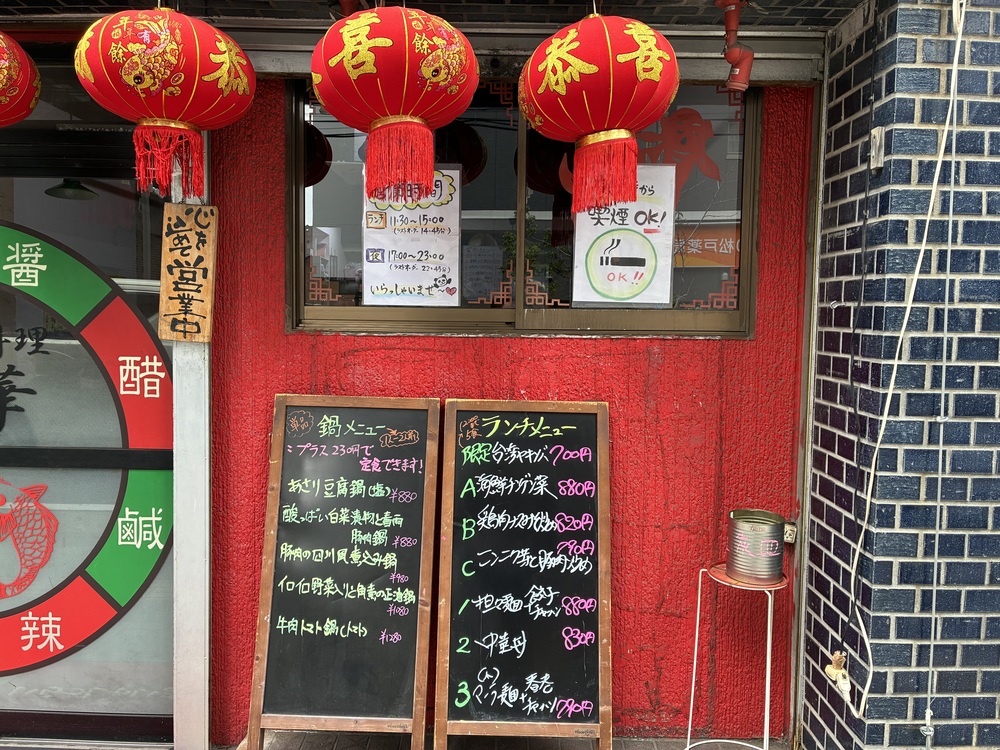 恭
年年有餘
喜
餘
恭
喜
心を込めて営業中
醤
醋
鹹
辣
料理
営業時間
ランチ 11:30〜15:00
(ラストオーダー 14:45分)
夜 17:00〜23:00
(ラストオーダー 22:45分)
いらっしゃいませ〜
から
喫煙OK!
OK!!
松戸薬
単品 鍋メニュー
プラス230円で
定食できます!
あさり豆腐鍋(塩) ¥880
酸っぱい白菜漬物と春雨
豚肉鍋 ¥880
豚肉の四川風煮込み鍋
¥980
イロイロ野菜入りと角煮の正油鍋
¥1080
牛肉トマト鍋(トマト) ¥1280
ランチメニュー
限定 700円
A 海鮮チンゲン菜 880円
B 820円
790円
C ニンニク芽と豚肉炒め
1 担々麺 餃子
880円
2 中華丼 830円
3 790円